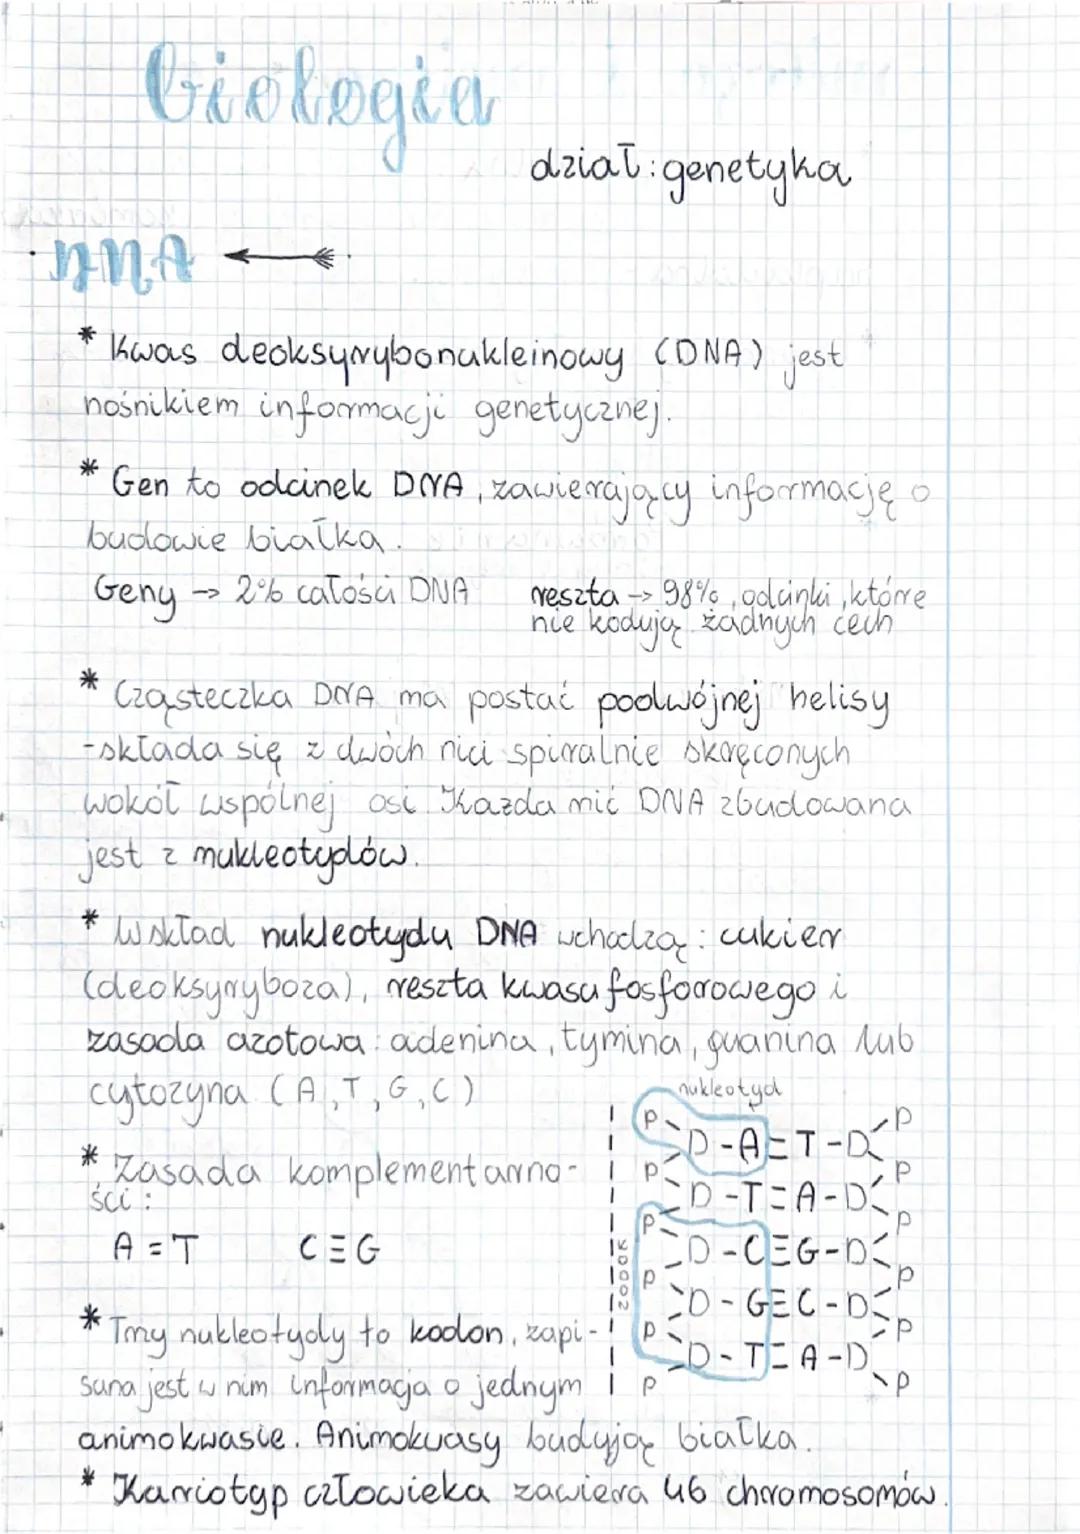 biologia
dział: genetyka
· DNA
* Kwas deoksyrybonukleinowy (DNA) jest
nośnikiem informacji genetycznej.
* Gen to odcinek DNA, zawierający informację o
budowie białka.
Geny -> 2% całości DNA
reszta -> 98%, odcinki, które
nie kodują żadnych cech
* Cząsteczka DNA ma postać podwójnej helisy
-składa się z dwóch nici spiralnie skręconych
wokół wspólnej osi Każda nić DNA zbudowana
jest z nukleotydów.
* W skład nukleotydu DNA wchodzą: cukier
(deoksyryboza), reszta kwasu fosforowego i
zasada azotowa: adenina, tymina, guanina lub
cytozyna (A, T, G, C)
* Zasada komplementarno-
ści:
A = T C ≡ G
* Trzy nukleotydy to kodon, zapi-
sana jest w nim informacja o jednym
animokwasie. Animokwasy budują białka.
* Kariotyp człowieka zawiera 46 chromosomów.
nukleotyd
P P
D-A=T-D
P P
D-T=A-D
P P
D-C≡G-D
P P
D-G≡C-D
P P
D-T=A-D
P P